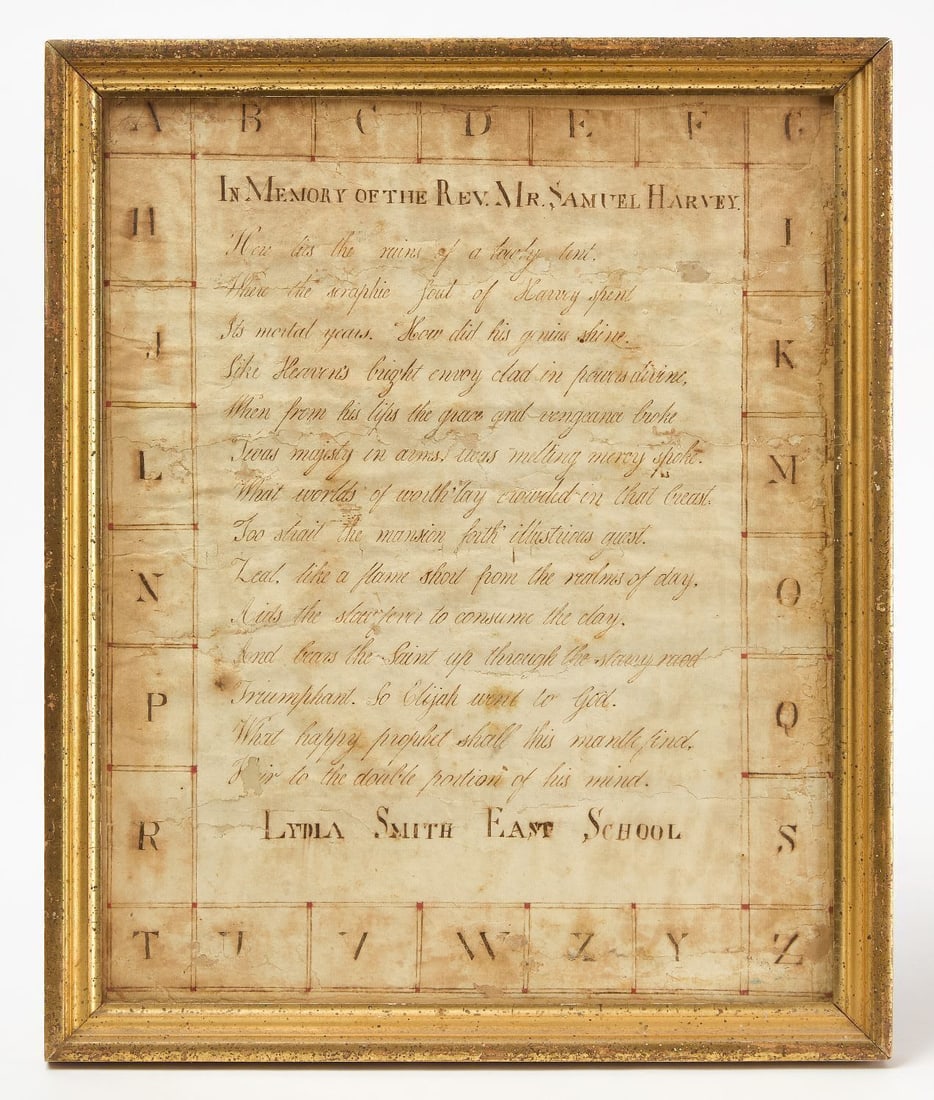 A B C D E F G
IN MEMORY OF THE REV. MR. SAMUEL HARVEY.
H I
How lies the ruins of a lowly tent.
Where the seraphic soul of Harvey spent
Its mortal years. How did his genius shine.
Like Heaven's bright envoy clad in powers divine.
J K
When from his lips the grace and vengeance broke
Twas majesty in arms, twas melting mercy spoke.
L M
What worlds of worth lay crowded in that breast.
Too strait the mansion forth illustrious guest.
Zeal. like a flame shott from the realms of day.
N O
Aids the slow fever to consume the clay.
And bears the Saint up through the starry road
Triumphant. So Elijah went to God.
P Q
What happy prophet shall his mantle find.
Heir to the double portion of his mind.
R S
LYDIA SMITH EAST SCHOOL
T U V W X Y Z